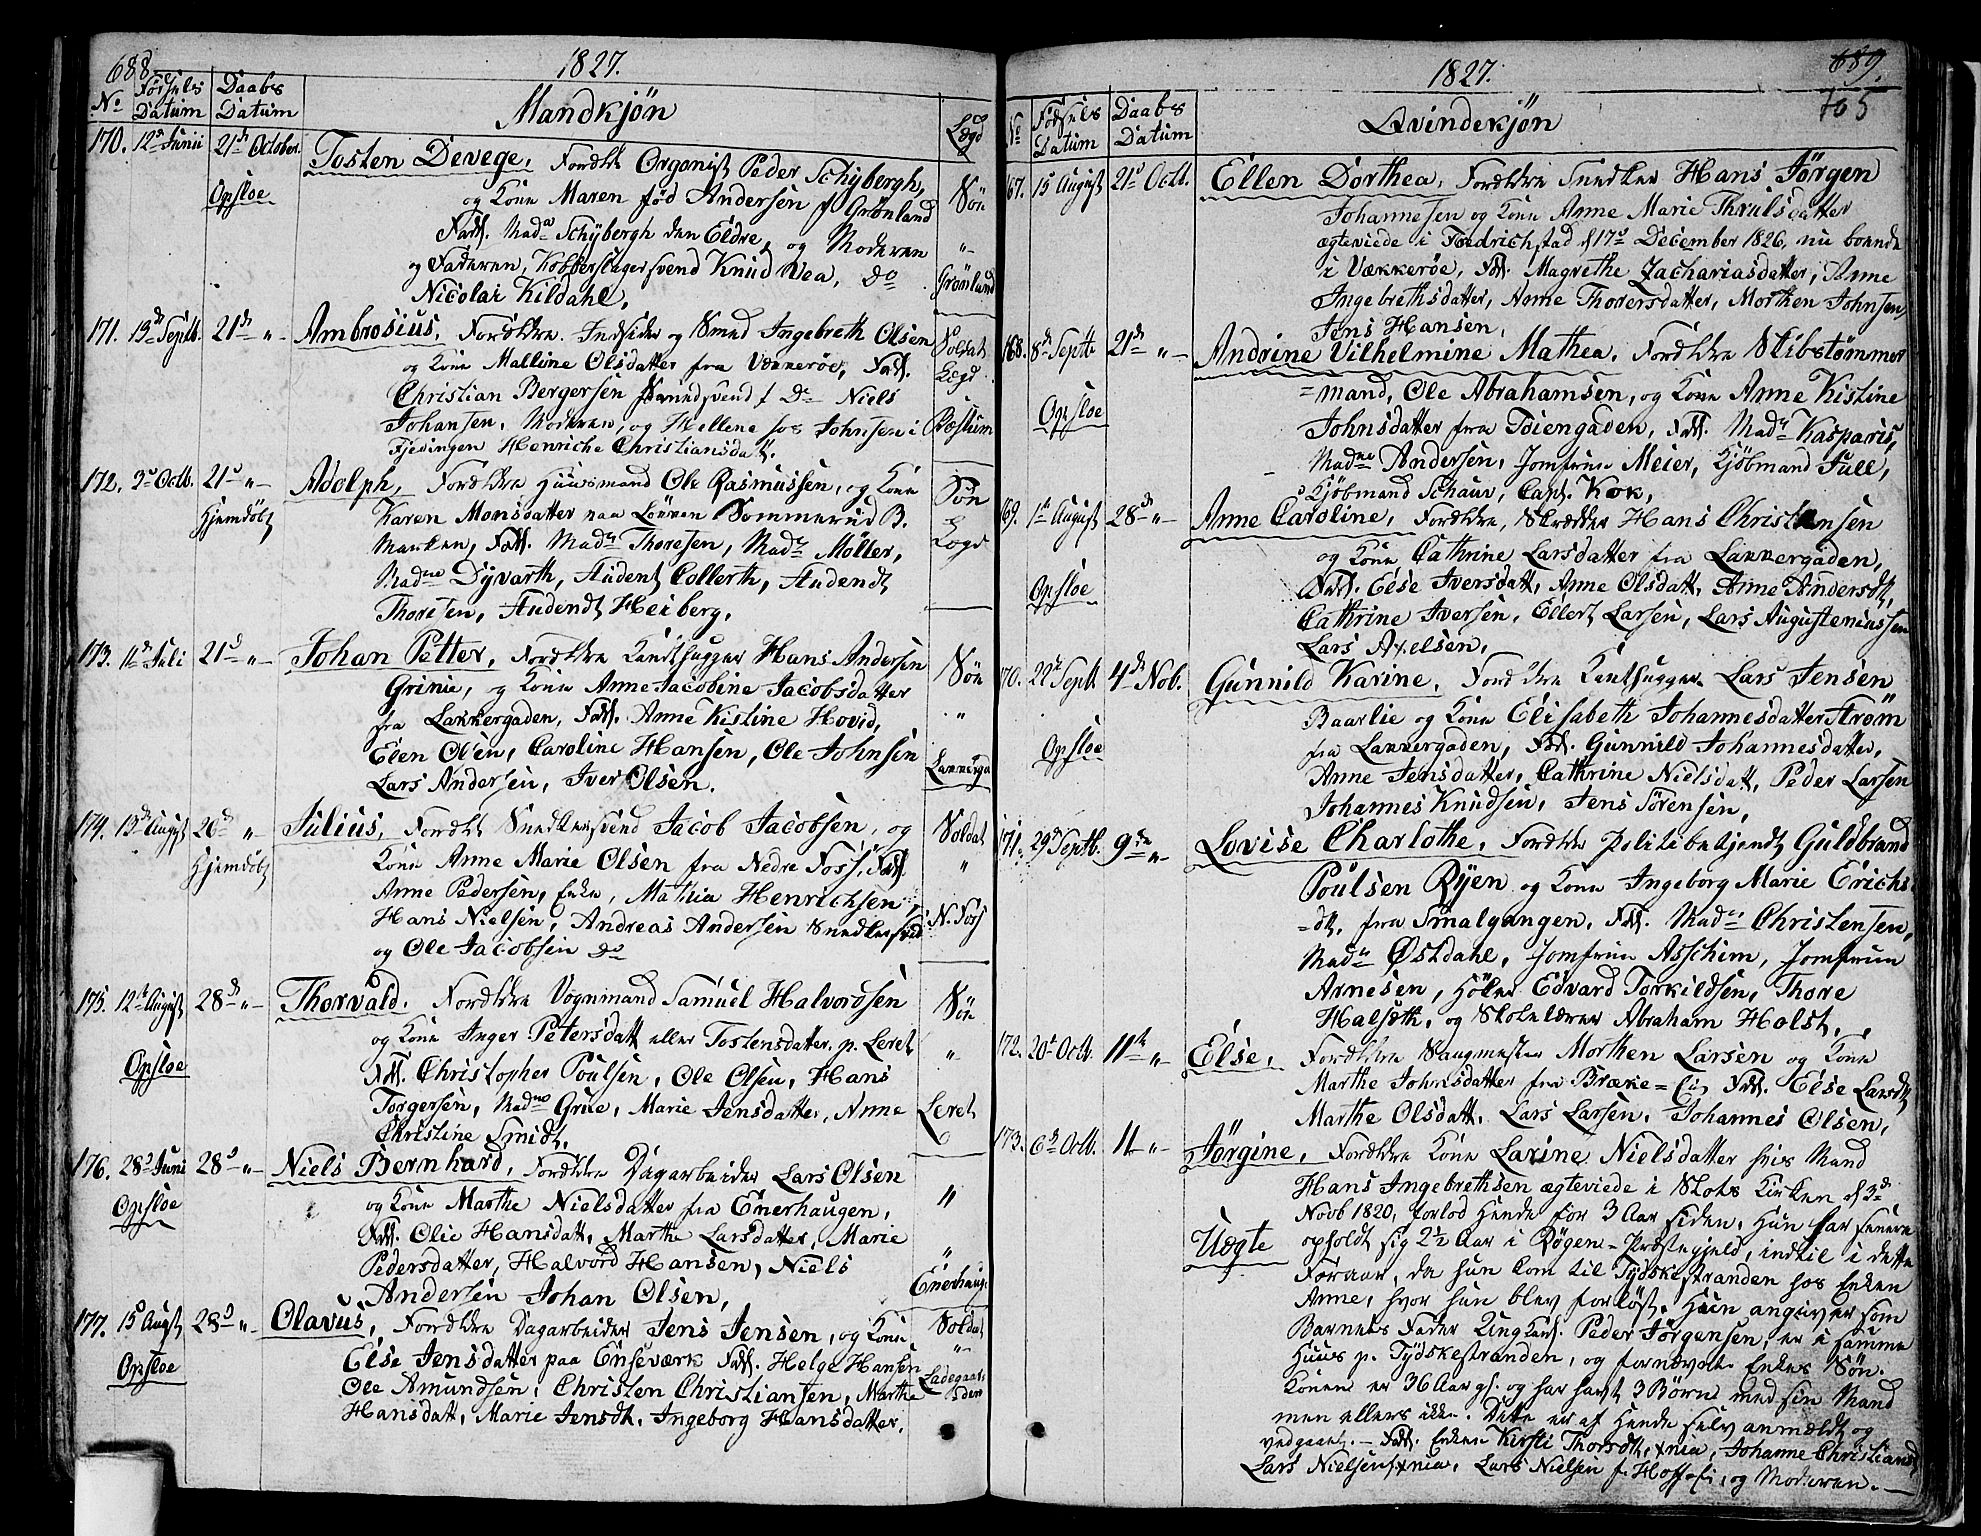 688.
1827.
No
Fødsels Datum
Daabs Datum
Mandkjøn
Lægd
170. 12te Junii 21de October. Tosten Devege, Forældre Organist Peder Schÿbergh,
Opsloe og Kone Maren fød Andersen f Grønland Søn
Fadd. Made Schÿbergh den Eldre, og Moderen "
og Faderen, Kobberslagersvend Knud Vea, Do Grønland
Nicolai Kildahl.
171. 13de Septb. 21de "- Ambrosius, Forældre Indsider og Smed Ingebreth Olsen Soldat
og Kone Malline Olsdatter fra Vækkerøe, Fadd. Lægd
Christian Bergersen Smedsvend f Do Niels
Johansen, Moderen, og Hellene hos Johnsen i Bæstum
Fjedingen Henriche Christiansdatt.
172. 3d Octb. 21d "- Adolph, Forældre Huusmand Ole Rasmussen, og Kone Søn
Hjemdøbt Karen Monsdatter paa Løkken Sommerrud B. Lægd
Marken, Fadd. Made Thoresen, Made Møller,
Madme Dyvarth, Student Collerth, Studendt
Thoresen, Studendt Heiberg,
173. 11te Juli 21d "- Johan Petter, Forældre Kandthugger Hans Andersen Søn
Grinie, og Kone Anne Jacobine Jacobsdatter
fra Lakkergaden, Fadd. Anne Kistine Hovid, "
Elen Olsen, Caroline Hansen, Ole Johnsen Lakkerga
Lars Andersen, Iver Olsen.
174. 13de August 26de " Julius, Forældre Snedkersvend Jacob Jacobsen, og Soldat
Hjemdöbt Kone Anne Marie Olsen fra Nedre Foss, Fadd. "
Anne Pedersen, Enke, Mathia Henrichsen,
Hans Nielsen, Andreas Andersen Snedkersvd N. Foss
og Ole Jacobsen Do
175. 12te August 28de "- Thorvald. Forældre Vognmand Samuel Halvorsen Søn
og Kone Inger Petersdatt eller Tostensdatter. p. Leret "
Opsloe Fadd. Christopher Poulsen, Ole Olsen, Hans
Torgersen, Madme Grue, Marie Jensdatter, Anne Leret
Christine Smidt.
176. 28d Juni 28d "- Niels Bernhard, Forældre Dagarbeider Lars Olsen
Opsloe og Kone Marthe Nielsdatter fra Enerhaugen, "
Fadd. Olie Hansdatt, Marthe Larsdatter, Marie
Pedersdatter, Halvord Hansen, Niels "
Andersen Johan Olsen, Enerhaug.
177. 15d Augst 28d "- Olavus, Forældre Dagarbeider Jens Jensen, og Kone Soldat
Opsloe Else Jensdatter paa Enseværk Fadd. Helge Hansen "
Ole Amundsen, Christen Christiansen, Marthe Ladegaats
Hansdatt, Marie Jensdt. Ingeborg Hansdatter.
689.
705
1827.
No
Fødsels Datum
Daabs Datum
Qvindekjön
67. 15 August 21d Octt. Ellen Dorthea, Forældre Snedker Hans Jörgen
Johannesen og Kone Anne Marie Thrulsdatter
ægteviede i Fredrichstad d 17d December 1826, nu boende
i Vækkerøe, Fadd. Magrethe Zachariasdatter, Anne
Ingebrethsdatter, Anne Thorersdatter, Morthen Johnsen,
Jens Hansen,
168. 8de Septb 21de "- Andrine Vilhelmine Mathea. Forældre Skibstømmer
=mand, Ole Abrahamsen, og Kone Anne Kistine
Opsloe Johnsdatter fra Töiengaden, Fadd. Made Kasparis,
Madme Andersen, Jomfrue Meier, Kjöbmand Tull,
Kjöbmand Schaur, Capt. Kok,
69. 1te August 28de "- Anne Caroline, Forældre, Skrædder Hans Christensen
og Kone Cathrine Larsdatter fra Lakkergaden,
Opsloe Fadd. Else Iversdatt, Anne Olsdatt, Anne Andersdt,
Cathrine Iversen, Ellert Larsen, Lars Augusteniussen
Lars Axelsen,
70. 22de Septb 4de Nob. Gunnild Karine, Forældre Kanthugger Lars Jensen
Baarlie og Kone Elisabeth Johannesdatter Strøm
Opsloe fra Lakkergaden, Fadd. Gunnild Johannesdatter,
Anne Jensdatter, Cathrine Nielsdatt, Peder Larsen
Johannes Knudsen, Jens Sörensen,
171. 29de Septb. 9de "- Lovise Charlothe, Forældre Politibetjendt Guldbrand
Poulsen Ryen og Kone Ingeborg Marie Erichs
=dt, fra Smalgangen, Fadd. Made Christensen,
Made Østdahl, Jomfrue Asschim, Jomfrue
Arnesen, Höker Edvard Torkildsen, Thore
Halseth, og Skolelærer Abraham Holst.
172. 20de Octb. 11te "- Else, Forældre Saugmester Morthen Larsen og Kone
Marthe Johnsdatter fra Brække=Eie, Fadd. Else Larsdt,
Marthe Olsdatt, Lars Larsen, Johannes Olsen,
173. 6te Octb. 11 "- Jörgine, Forældre Kone Larine Nielsdatter hvis Mand
Hans Ingebrethsen ægteviede i Slots Kirken d 3d
Novb 1820, forlod Hende for 3 Aar siden, Hun har senere
Uægte opholdt sig 2½ Aar i Røgen-Præstegjeld, indtil i dette
Foraar, da hun kom til Tydskestranden hos Enken
Anne, hvor hun blev forløst, Hun angiver som
Barnets Fader Ung Karl. Peder Jörgensen, er i samme
Huus p. Tydskestranden, og fornævnte Enkes Søn.
Konen er 36 Aar gl. og har havt 3 Børn med sin Mand
men ellers ikke. Dette er af Hende selv anmældt og
vedgaaet. - Fadd. Enken Kirsti Thorsdt, Johanne Christiansd
Lars Nielsen, Lars Nielsen f. og Moderen.